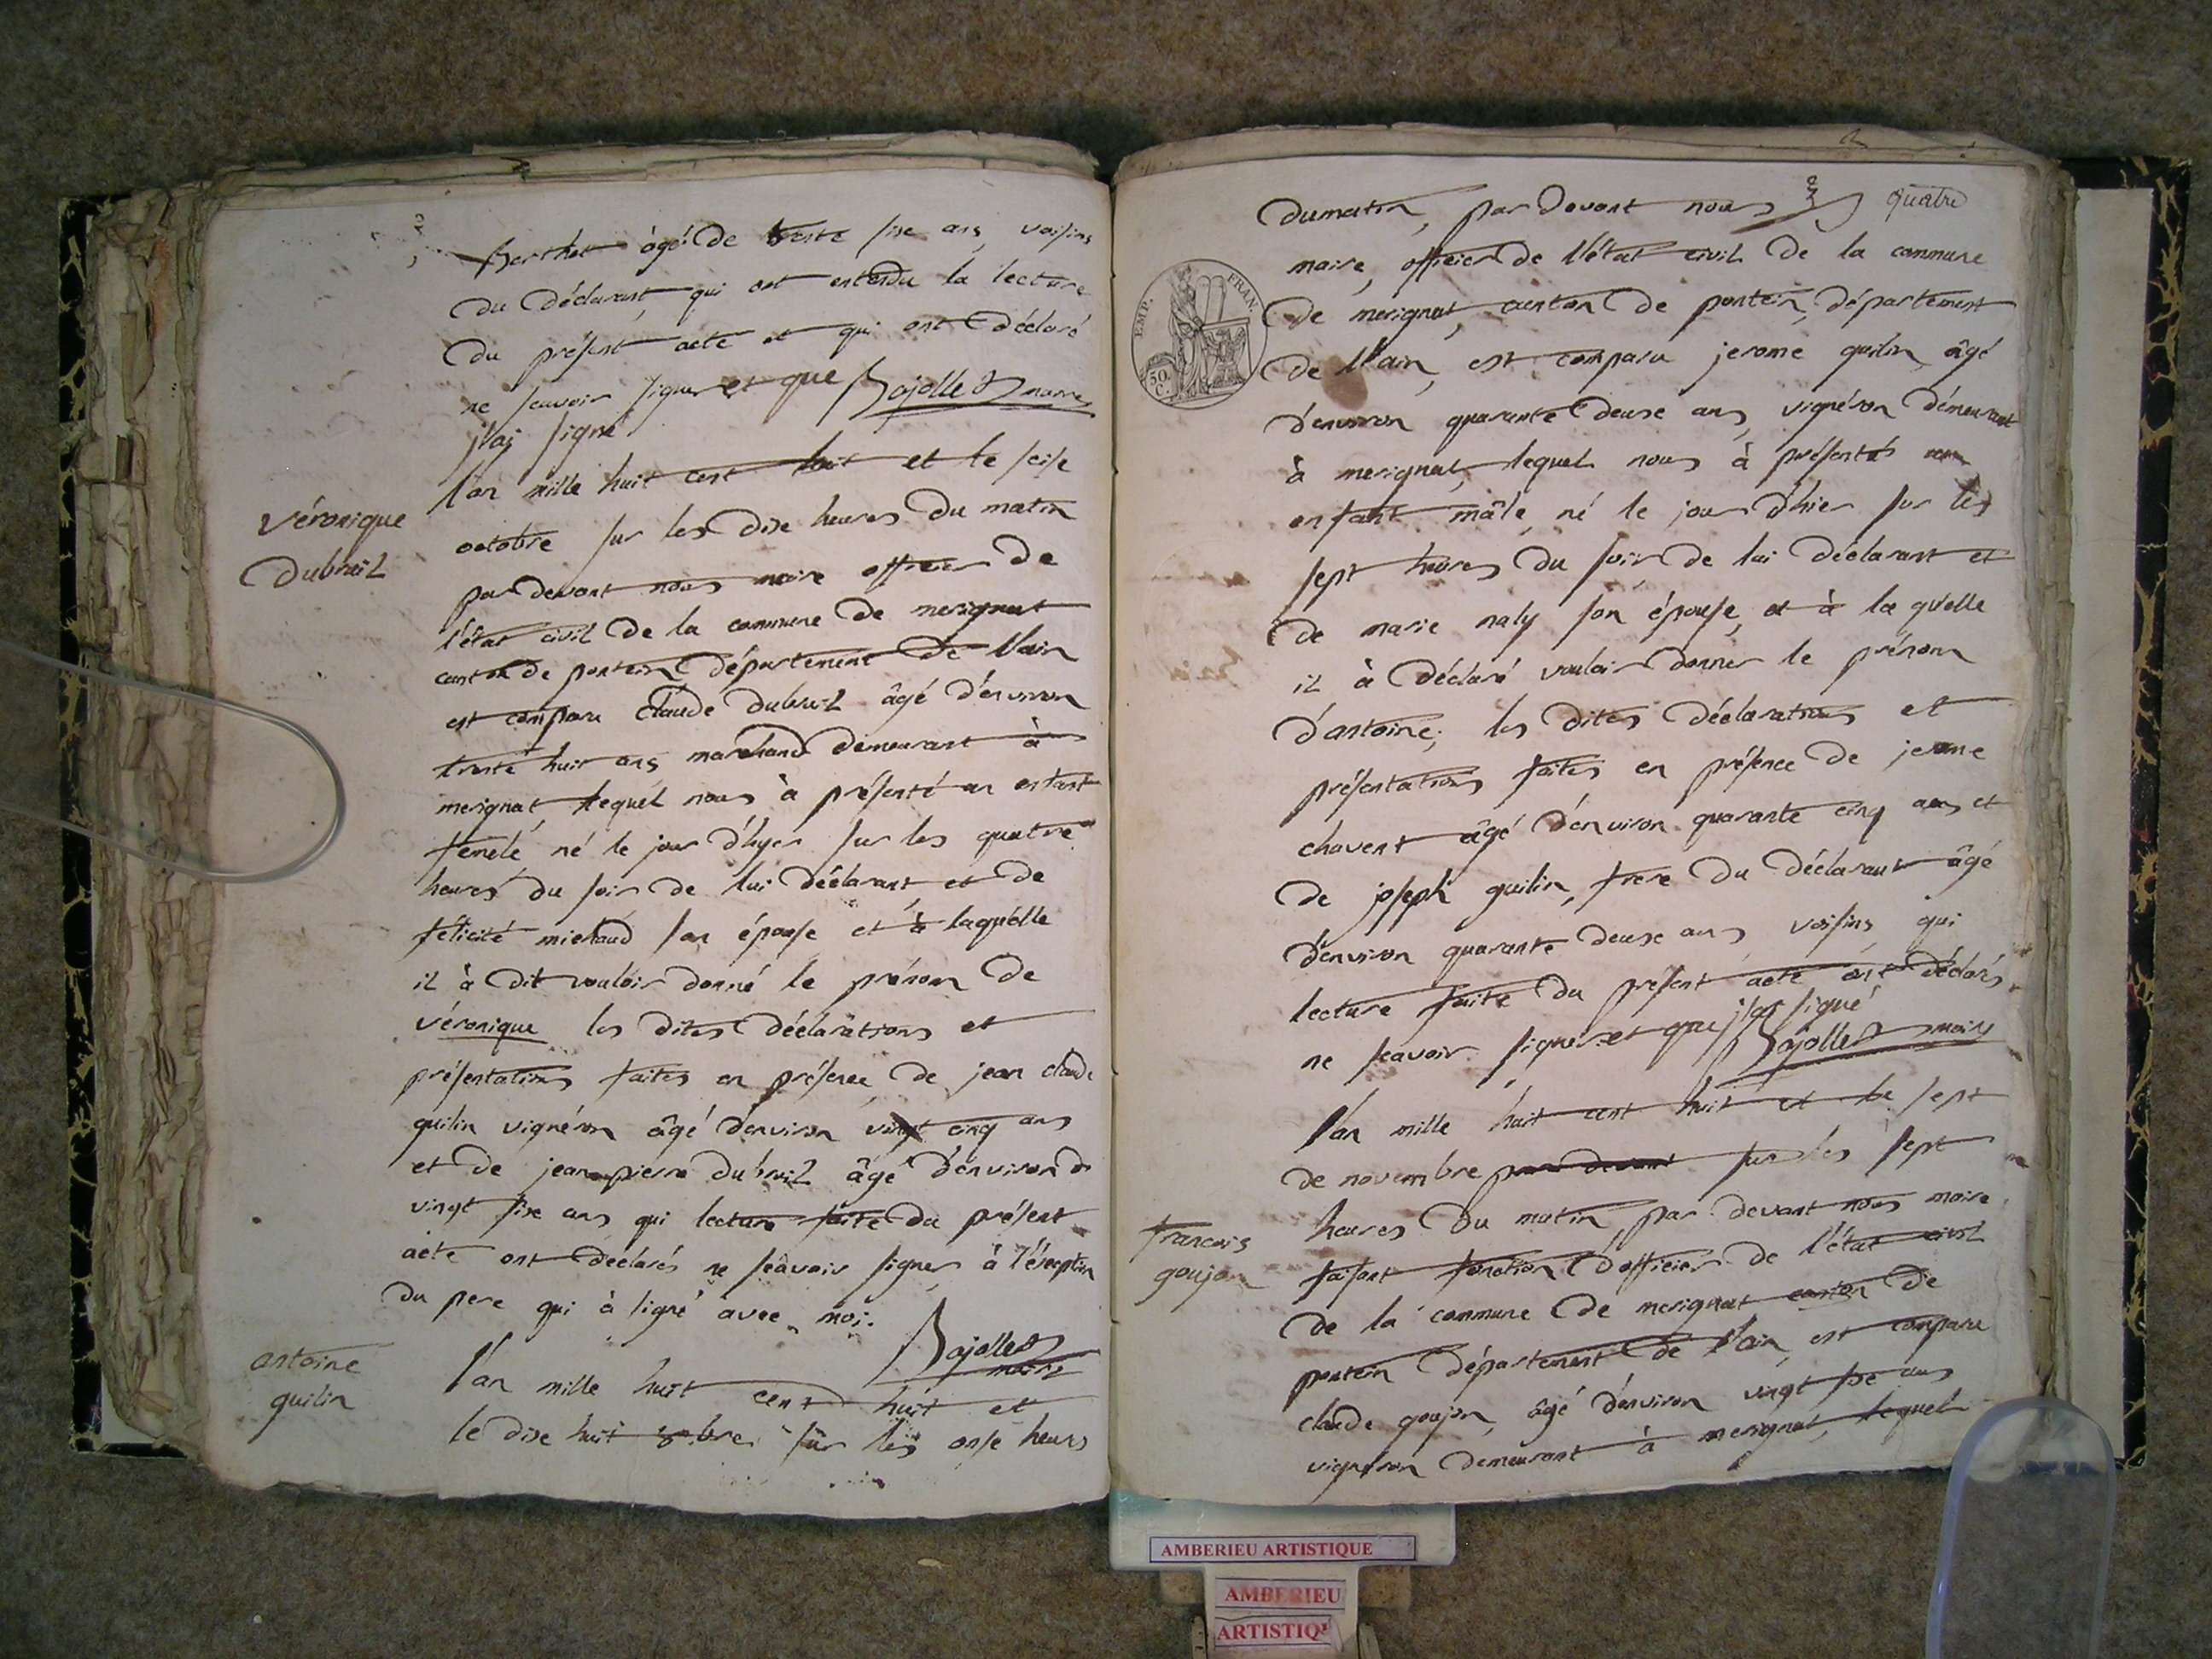 Berthet âgé de trente sixe ans, voisins
du déclarant, qui ont entendu la lecture
du présent acte et qui ont déclaré
ne scavoir signer et que Bajollet maire
j'ai signé
l'an mille huit cent huit et le seise
Véronique
Dubreil
octobre sur les dixe heures du matin
par devant nous maire officier de
l'état civil de la commune de merignat
canton de pontein département de l'ain
est comparu claude dubreil âgé d'environ
trente huit ans marchand demeurant à
merignat, lequel nous à présenté un enfant
femele, né le jour d'hyer sur les quatre
heures du soir de lui déclarant et de
félicité michaud son épouse et à laquelle
il à dit vouloir donné le prénom de
véronique les dites déclarations et
présentations faites en présence de jean claude
guilin vignéron âgé d'environ vingt cinq ans
et de jean pierre dubreil âgé d'environ de
vingt sixe ans qui lecture faite du présent
acte ont déclarés ne scâvoir signer à l'éxeption
du pere qui à signé avec moi.
Bajollet
maire
antoine
guilin
l'an mille huit cent huit et
le dixe huit 8bre sur les onse heures
quatre
du matin, par devant nous
maire, officier de l'état civil de la commune
de merignat, canton de pontein, département
de l'ain, est comparu jerome guilin, âgé
d'environ quarante deuxe ans, vignéron démeurant
à merignat, lequel nous à présentés un
enfant mâle, né le jour d'hier sur les
sept heures du soir de lui déclarant et
de marie naly son épouse, et à la quelle
il à déclaré vouloir donner le prénom
d'antoine; les dites déclarations et
présentations faites en présence de jerome
chavent âgé d'environ quarante cinq ans et
de joseph guilin, frere du déclarant âgé
d'environ quarante deuxe ans, voisins qui
lecture faite du présent acte ont déclarés
ne scavoir signer et que j'ai signé
Bajollet maire
l'an mille huit cent huit et le sept
de novembre par devant sur les sept
heures du matin, par devant nous maire
françois
goujon
faisant fonction d'officier de l'état civil
de la commune de merignat canton de
pontein département de l'ain, est comparu
claude goujon, âgé d'environ vingt sixe ans
vigneron demeurant à merignat, lequel
EMP. FRAN.
50.
C.
AMBERIEU ARTISTIQUE
AMBERIEU
ARTISTIQ